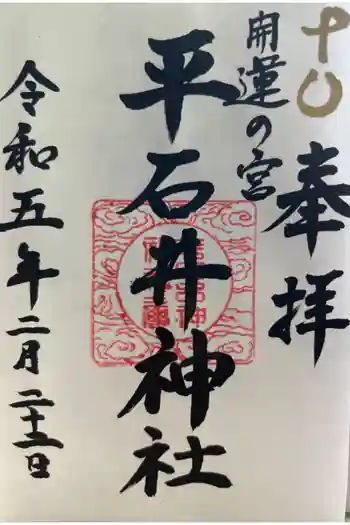 奉拝
開運の宮
平石井神社
令和五年二月二十二日